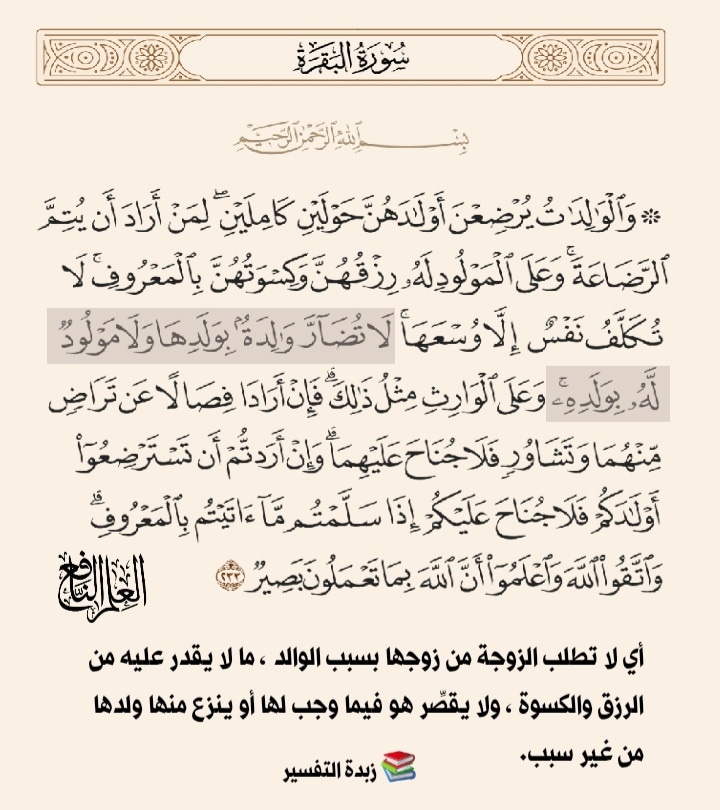 سُورَةُ البَقَرَةِ
بِسْمِ اللَّهِ الرَّحْمَٰنِ الرَّحِيمِ
۞ وَٱلْوَٰلِدَٰتُ يُرْضِعْنَ أَوْلَٰدَهُنَّ حَوْلَيْنِ كَامِلَيْنِۖ لِمَنْ أَرَادَ أَن يُتِمَّ
ٱلرَّضَاعَةَۚ وَعَلَى ٱلْمَوْلُودِ لَهُۥ رِزْقُهُنَّ وَكِسْوَتُهُنَّ بِٱلْمَعْرُوفِۚ لَا
تُكَلَّفُ نَفْسٌ إِلَّا وُسْعَهَاۚ لَا تُضَآرَّ وَٰلِدَةُۢ بِوَلَدِهَا وَلَا مَوْلُودٌ
لَّهُۥ بِوَلَدِهِۦۚ وَعَلَى ٱلْوَارِثِ مِثْلُ ذَٰلِكَۗ فَإِنْ أَرَادَا فِصَالًا عَن تَرَاضٍ
مِّنْهُمَا وَتَشَاوُرٍ فَلَا جُنَاحَ عَلَيْهِمَاۗ وَإِنْ أَرَدتُّمْ أَن تَسْتَرْضِعُوٓا۟
أَوْلَٰدَكُمْ فَلَا جُنَاحَ عَلَيْكُمْ إِذَا سَلَّمْتُم مَّآ ءَاتَيْتُم بِٱلْمَعْرُوفِۗ
وَٱتَّقُوا۟ ٱللَّهَ وَٱعْلَمُوٓا۟ أَنَّ ٱللَّهَ بِمَا تَعْمَلُونَ بَصِيرٌ ٢٣٣
العلم النافع
أي لا تطلب الزوجة من زوجها بسبب الوالد ، ما لا يقدر عليه من
الرزق والكسوة ، ولا يقصِّر هو فيما وجب لها أو ينزع منها ولدها
من غير سبب.
📚 زبدة التفسير